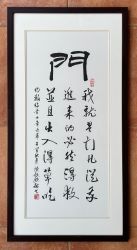 門
我就是門凡從我
進來的必然得救
並且出入得草吃
約翰福音十章九節